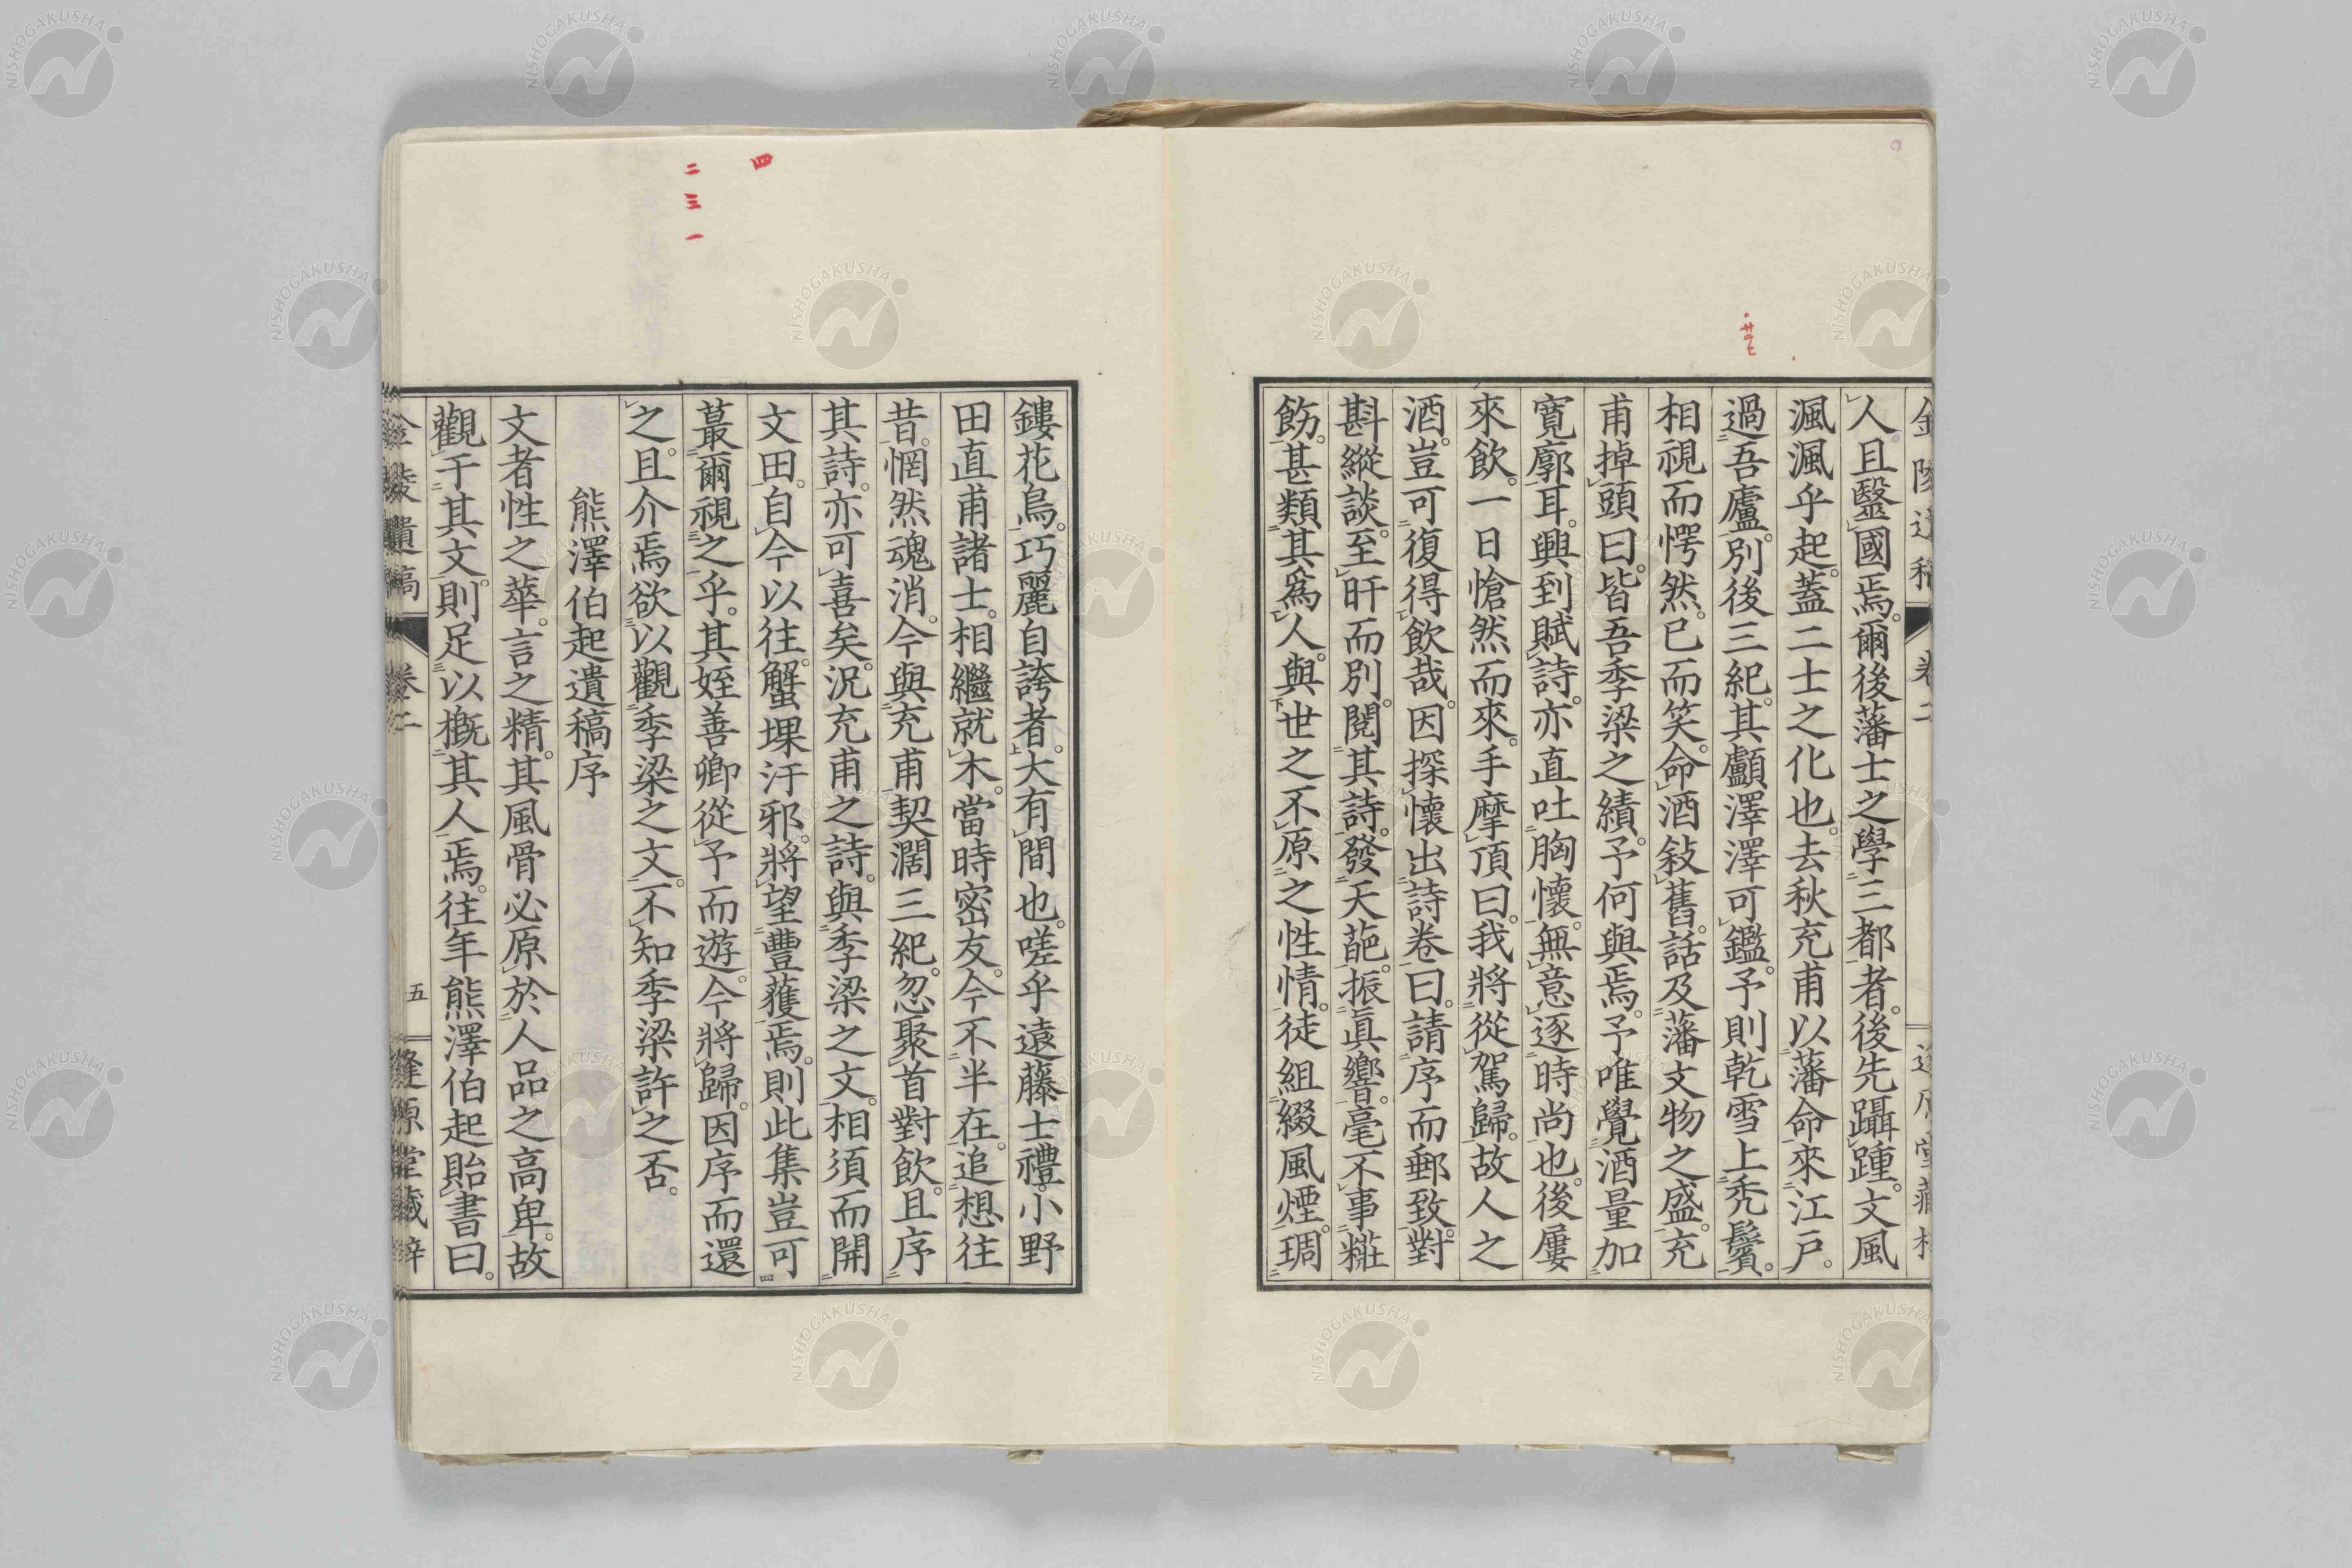 人且毉國焉。爾後藩士之學三都者。後先躡踵。文風
渢渢乎起。蓋二士之化也。去秋充甫以藩命來江戸。
過吾廬。別後三紀。其顱澤澤可鑑。予則乾雪上禿鬢。
相視而愕然。已而笑。命酒敍舊。話及藩文物之盛。充
甫掉頭曰。皆吾季梁之績。予何與焉。予唯覺酒量加
寛廓耳。興到賦詩。亦直吐胸懷。無意逐時尚也。後屢
來飮。一日愴然而來。手摩頂曰。我將從駕歸。故人之
酒。豈可復得飮哉。因探懷出詩卷曰。請序而郵致。對
斟縱談。至旰而別。閱其詩。發天葩。振眞響。毫不事糚
飭。甚類其爲人。與世之不原之性情。徒組綴風煙。琱
鏤花鳥。巧麗自誇者。大有間也。嗟乎遠藤士禮。小野
田直甫諸士。相繼就木。當時密友。今不半在。追想往
昔。惘然魂消。今與充甫契濶三紀。忽聚首對飮。且序
其詩。亦可喜矣。況充甫之詩。與季梁之文。相須而開
文田。自今以往。蟹堁汙邪。將望豐穫焉。則此集豈可
蕞爾視之乎。其姪善卿從予而遊。今將歸。因序而還
之。且介焉欲以觀季梁之文。不知季梁許之否。
熊澤伯起遺稿序
文者性之華。言之精。其風骨必原於人品之高卑。故
觀于其文。則足以槪其人焉。往年熊澤伯起貽書曰。
卷二
五